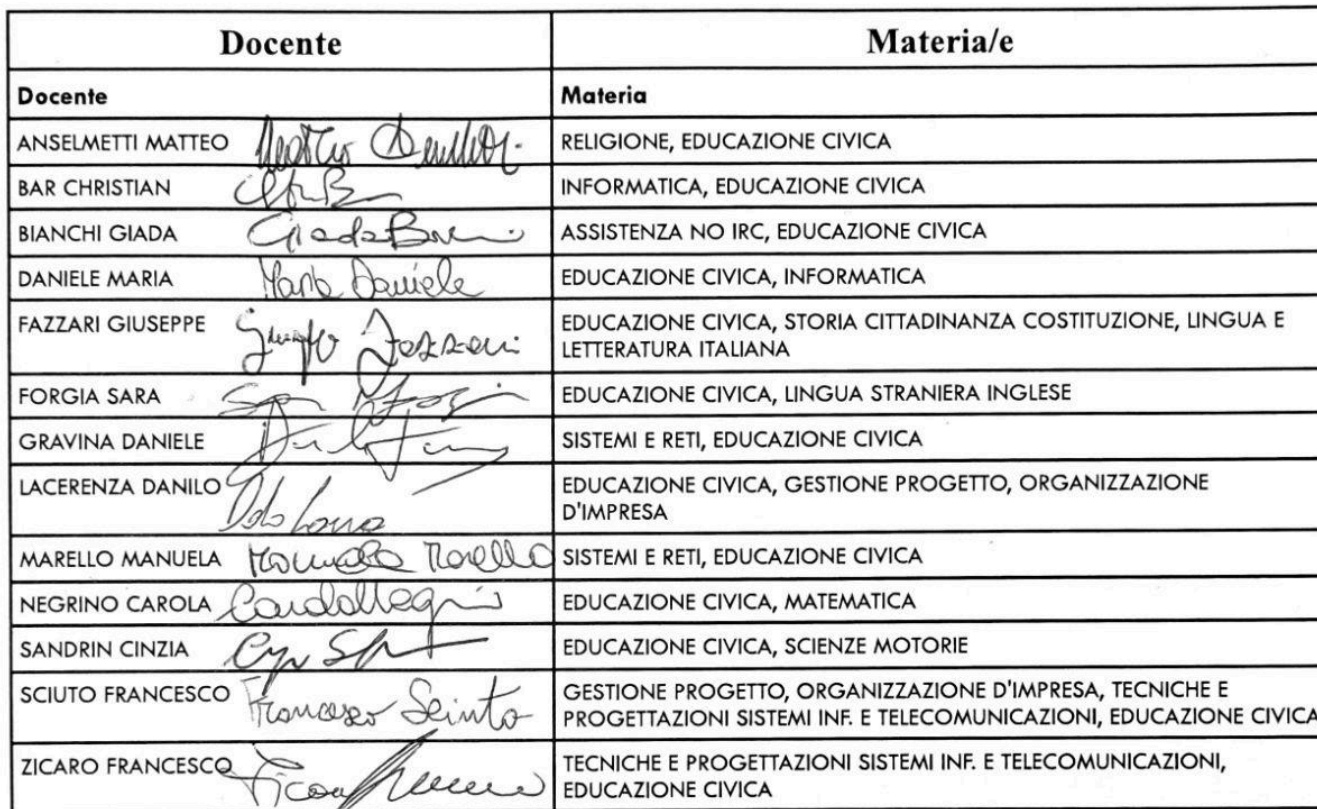 Docente Materia/e
Docente Materia
ANSELMETTI MATTEO RELIGIONE, EDUCAZIONE CIVICA
BAR CHRISTIAN INFORMATICA, EDUCAZIONE CIVICA
BIANCHI GIADA Giada ASSISTENZA NO IRC, EDUCAZIONE CIVICA
DANIELE MARIA Maria Daniele EDUCAZIONE CIVICA, INFORMATICA
FAZZARI GIUSEPPE Fazzari EDUCAZIONE CIVICA, STORIA CITTADINANZA COSTITUZIONE, LINGUA E
LETTERATURA ITALIANA
FORGIA SARA EDUCAZIONE CIVICA, LINGUA STRANIERA INGLESE
GRAVINA DANIELE SISTEMI E RETI, EDUCAZIONE CIVICA
LACERENZA DANILO EDUCAZIONE CIVICA, GESTIONE PROGETTO, ORGANIZZAZIONE
D'IMPRESA
MARELLO MANUELA Manuela Marello SISTEMI E RETI, EDUCAZIONE CIVICA
NEGRINO CAROLA EDUCAZIONE CIVICA, MATEMATICA
SANDRIN CINZIA EDUCAZIONE CIVICA, SCIENZE MOTORIE
SCIUTO FRANCESCO Francesco Sciuto GESTIONE PROGETTO, ORGANIZZAZIONE D'IMPRESA, TECNICHE E
PROGETTAZIONI SISTEMI INF. E TELECOMUNICAZIONI, EDUCAZIONE CIVICA
ZICARO FRANCESCO TECNICHE E PROGETTAZIONI SISTEMI INF. E TELECOMUNICAZIONI,
EDUCAZIONE CIVICA